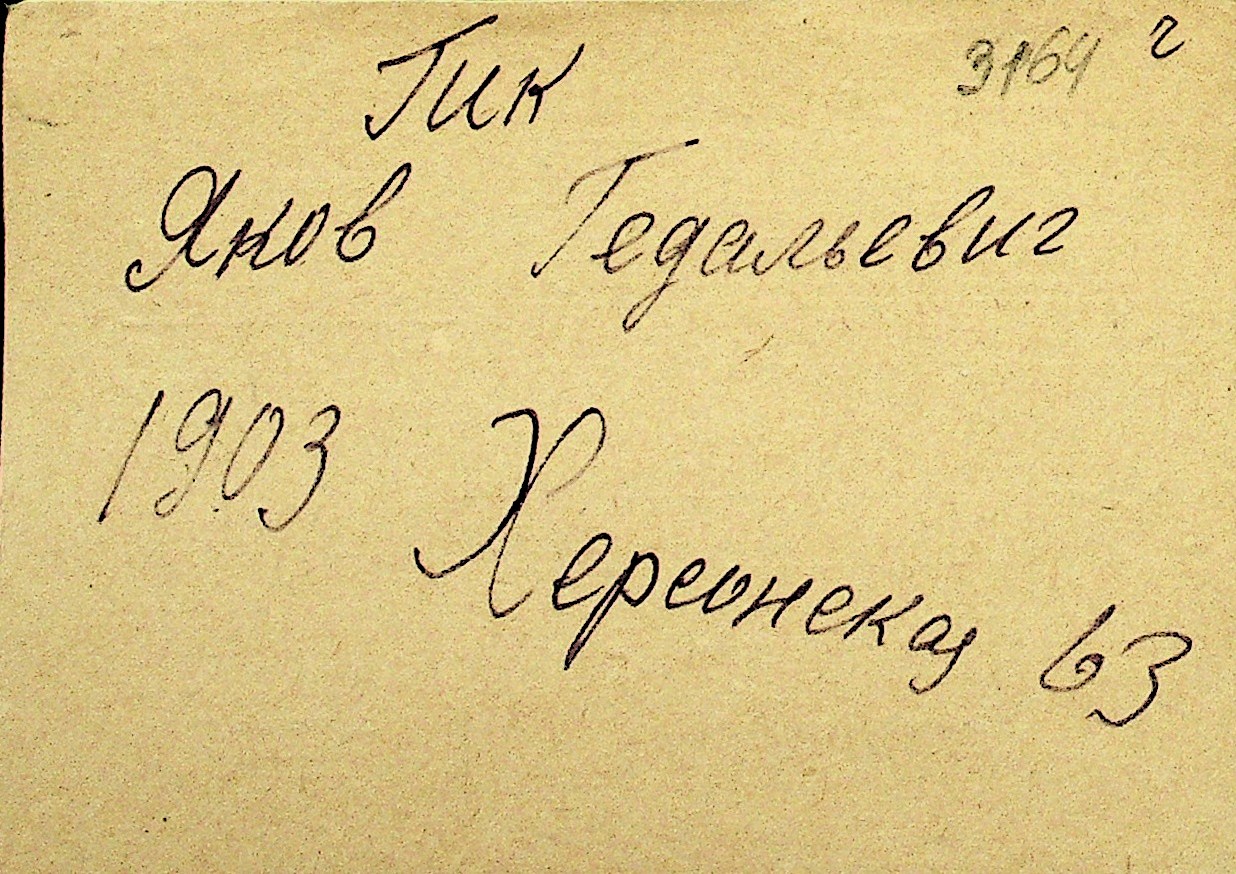 Гик 3164 г
Яков Гедальевиг
1903 Херсонская 63